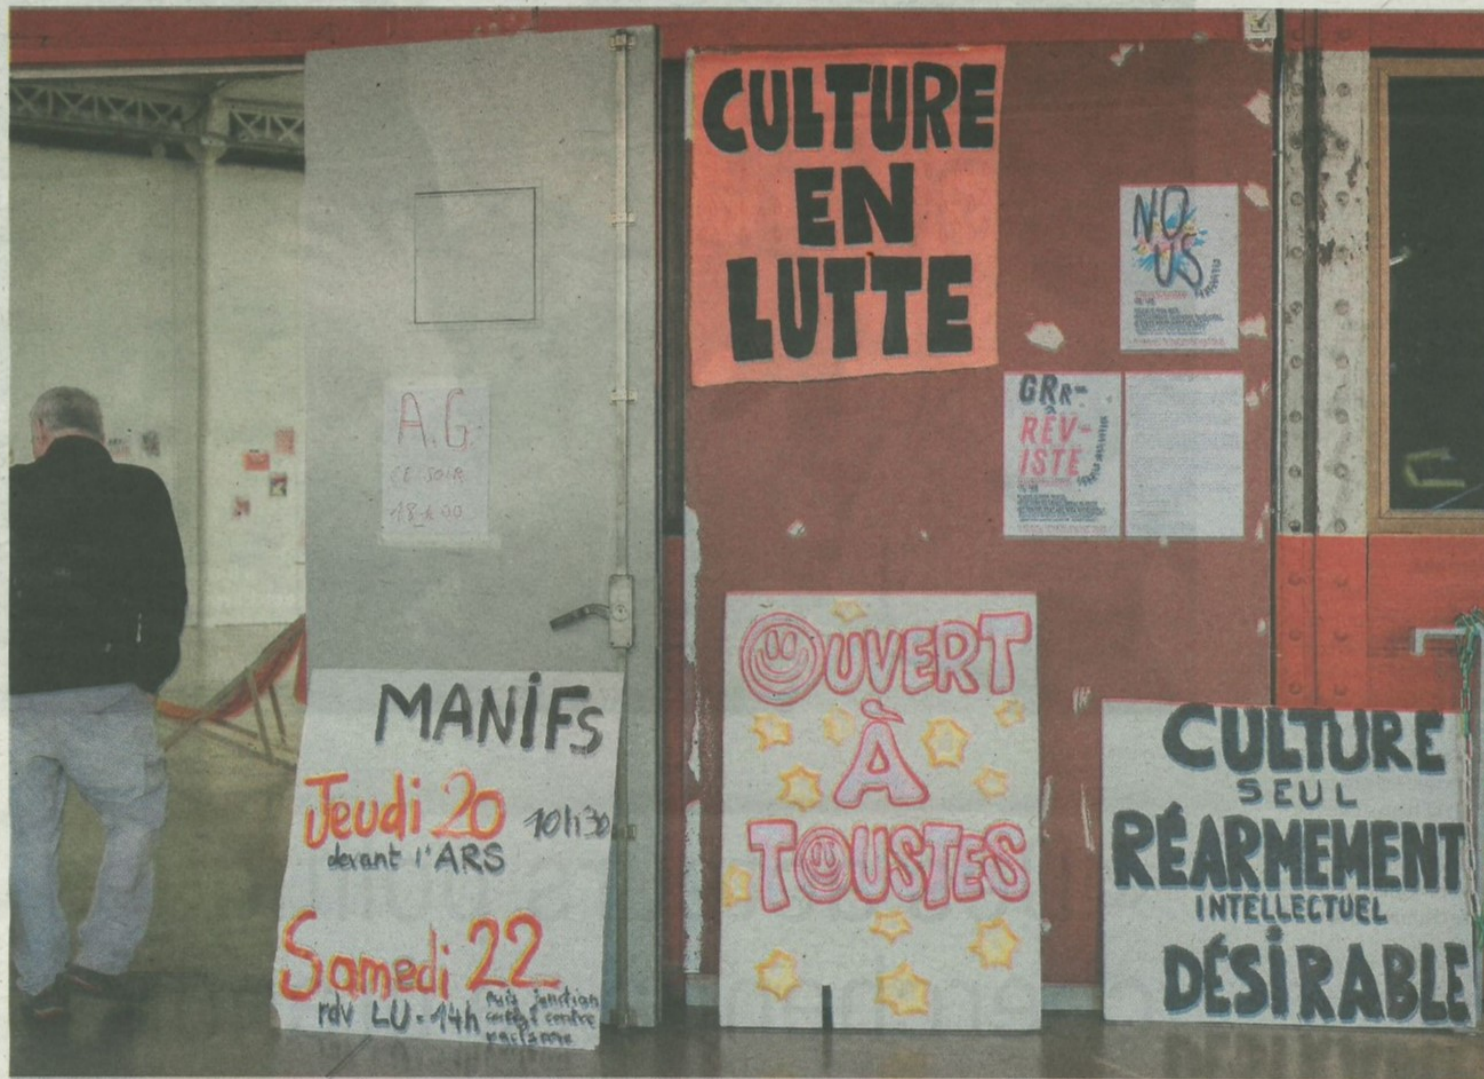 CULTURE
EN
LUTTE
NO
US
A.G.
CE SOIR
18h00
GRR-
RÉV-
ISTE
MANIFS
Jeudi 20 10h30
devant l'ARS
Samedi 22
rdv LU - 14h
puis jonction
cortège contre
racisme
OUVERT
À
TOUSTES
CULTURE
SEUL
RÉARMEMENT
INTELLECTUEL
DÉSIRABLE